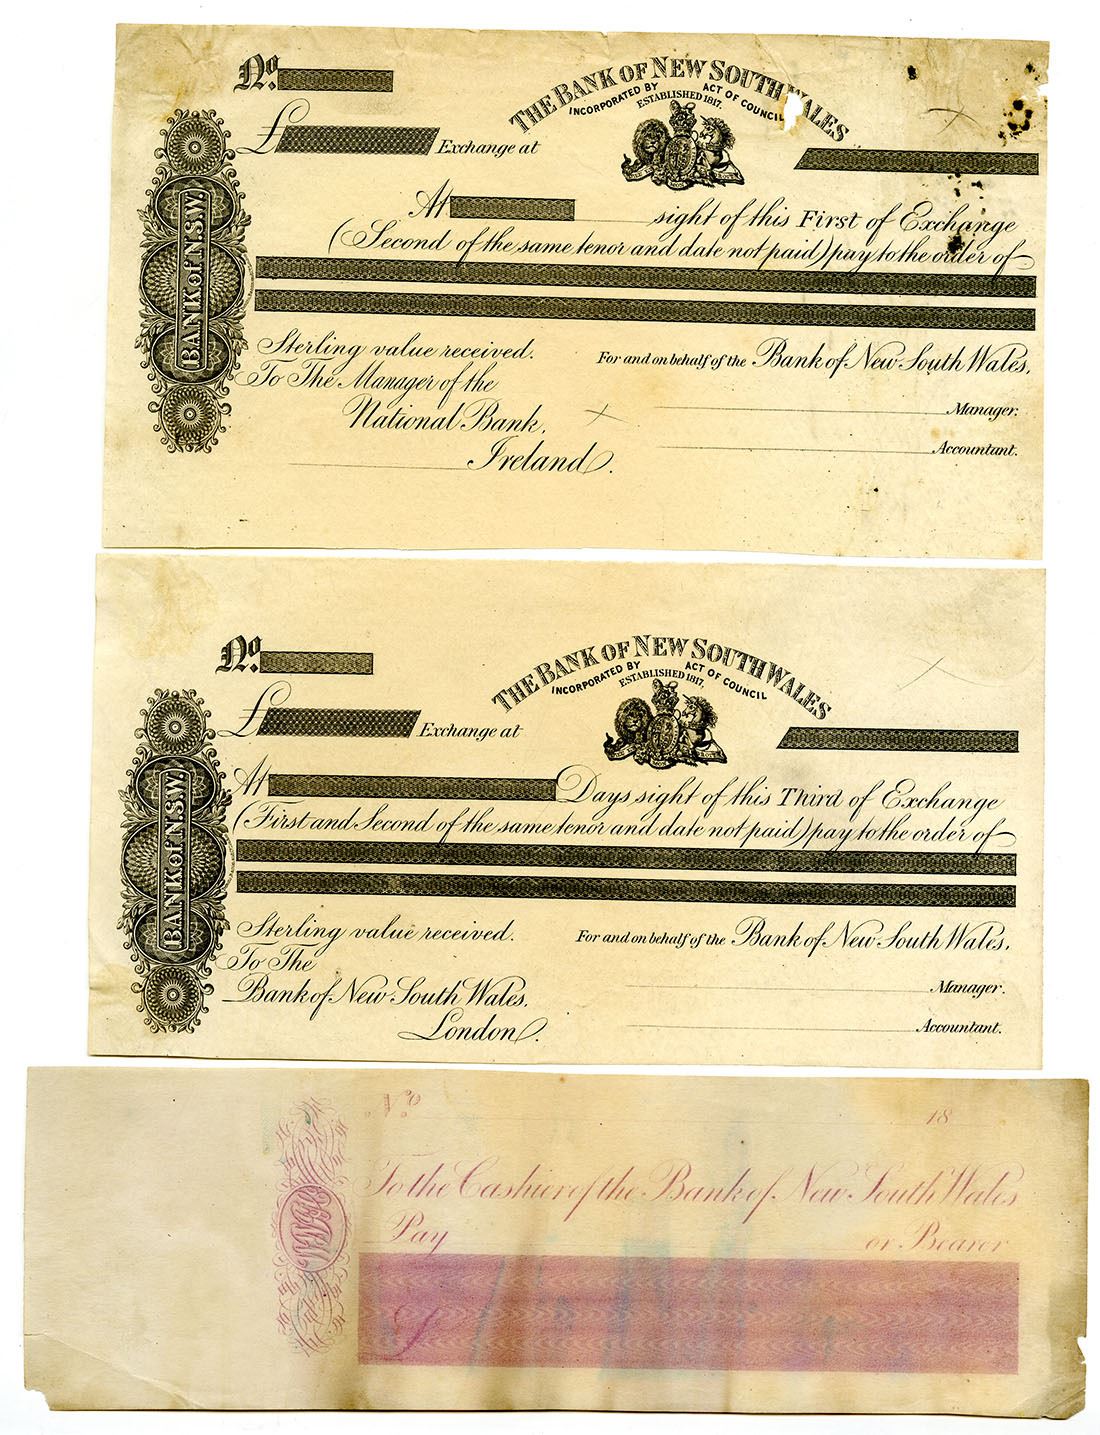 No.
THE BANK OF NEW SOUTH WALES
INCORPORATED BY ACT OF COUNCIL
ESTABLISHED 1817.
£ Exchange at
BANK of N.S.W.
At sight of this First of Exchange
(Second of the same tenor and date not paid) pay to the order of
Sterling value received.
For and on behalf of the Bank of New South Wales,
To The Manager of the
National Bank,
Manager.
Ireland.
Accountant.
No.
THE BANK OF NEW SOUTH WALES
INCORPORATED BY ACT OF COUNCIL
ESTABLISHED 1817.
£ Exchange at
BANK of N.S.W.
At Days sight of this Third of Exchange
(First and Second of the same tenor and date not paid) pay to the order of
Sterling value received.
For and on behalf of the Bank of New South Wales,
To The
Bank of New South Wales,
Manager.
London.
Accountant.
No. 18
To the Cashier of the Bank of New South Wales
Pay or Bearer
£